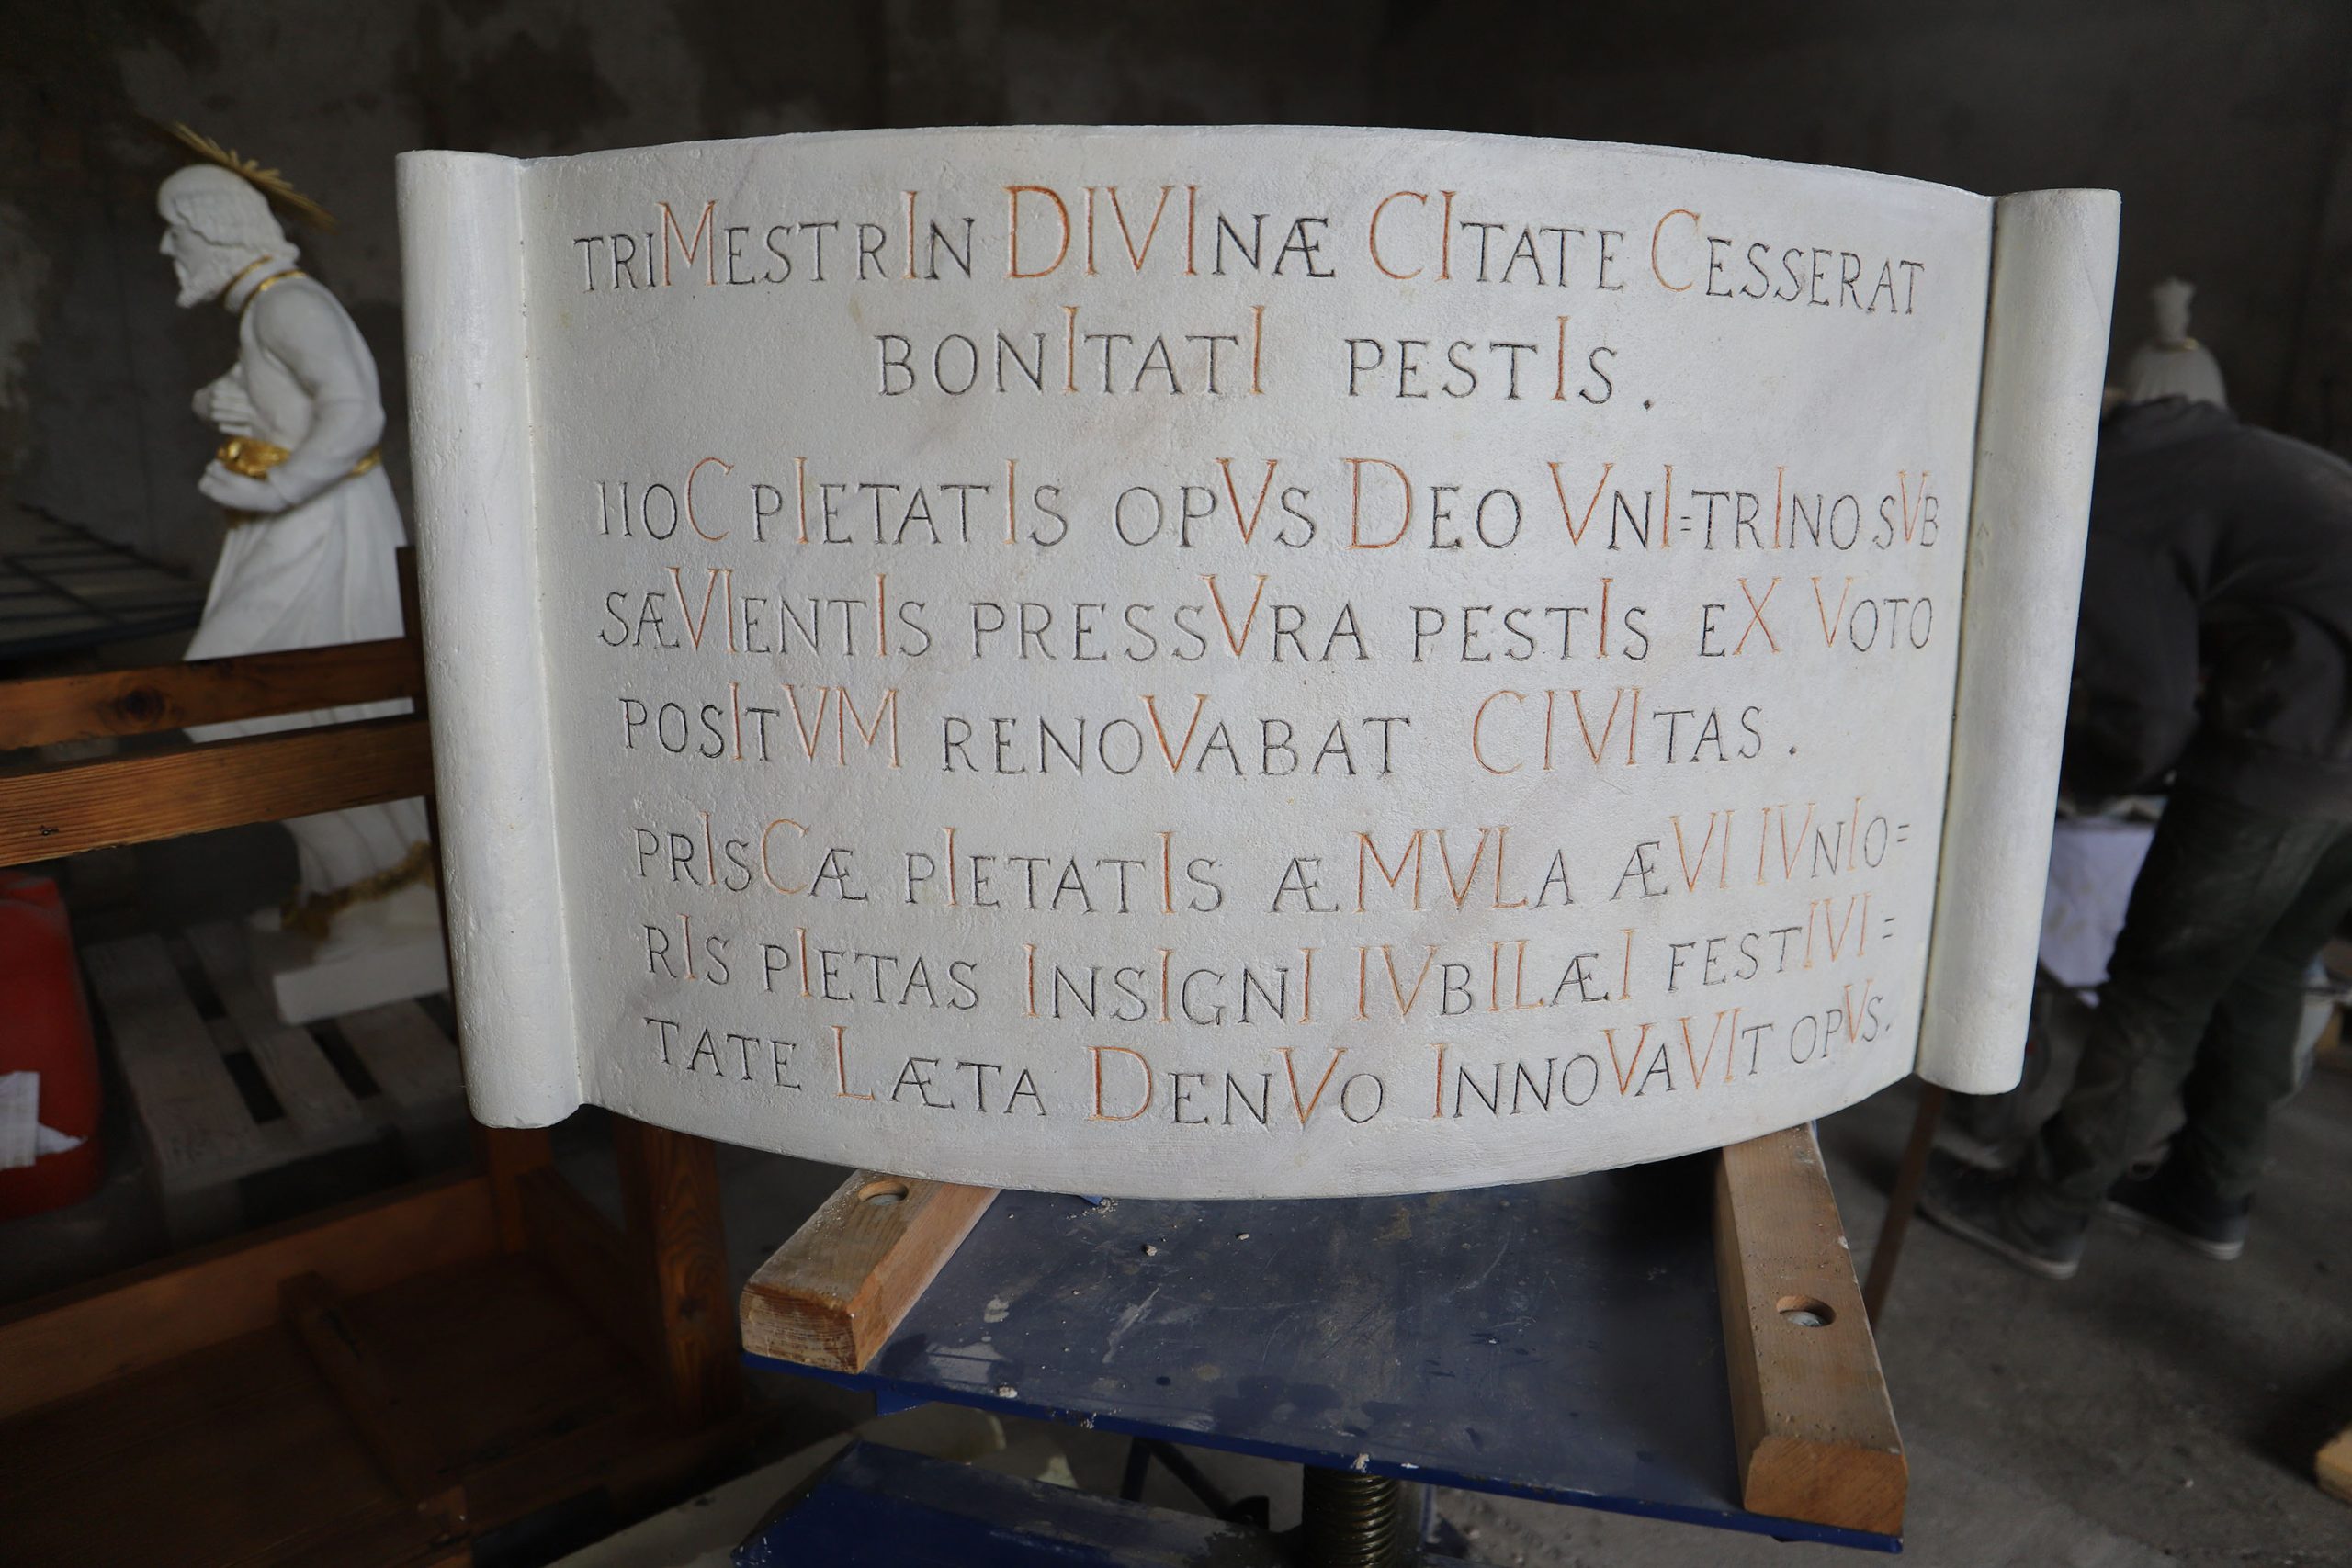 TRIMESTRIN DIVINÆ CITATE CESSERAT
BONITATI PESTIS.
IIOC PIETATIS OPVS DEO VNI=TRINO SVB
SÆVIENTIS PRESSVRA PESTIS EX VOTO
POSITVM RENOVABAT CIVITAS.
PRISCÆ PIETATIS ÆMVLA ÆVI IVNIO=
RIS PIETAS INSIGNI IVBILÆI FESTIVI=
TATE LÆTA DENVO INNOVAVIT OPVS.